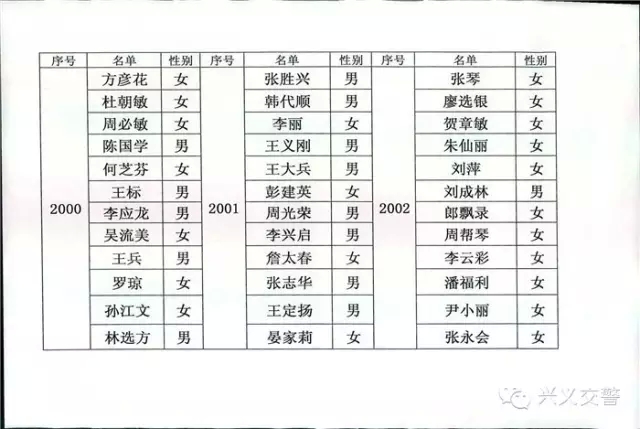 序号 名单 性别 序号 名单 性别 序号 名单 性别
方彦花 女 张胜兴 男 张琴 女
杜朝敏 女 韩代顺 男 廖选银 女
周必敏 女 李丽 女 贺章敏 女
陈国学 男 王义刚 男 朱仙丽 女
何芝芬 女 王大兵 男 刘萍 女
王标 男 彭建英 女 刘成林 男
2000 李应龙 男 2001 周光荣 男 2002 郎飘录 女
吴流美 女 李兴启 男 周帮琴 女
王兵 男 詹太春 女 李云彩 女
罗琼 女 张志华 男 潘福利 女
孙江文 女 王定扬 男 尹小丽 女
林选方 男 晏家莉 女 张永会 女
兴义交警